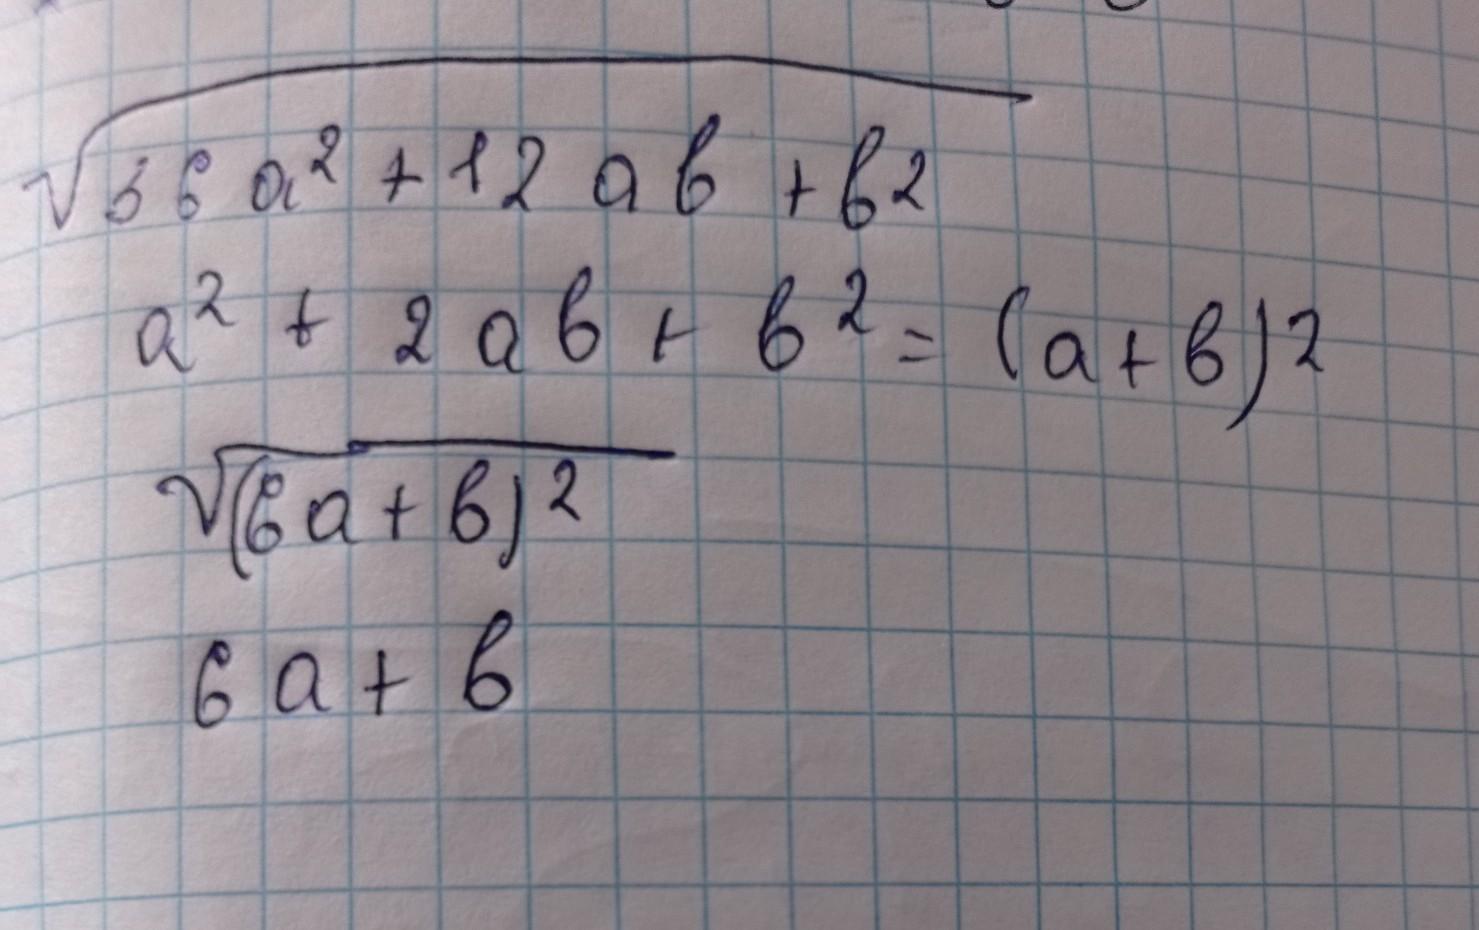 √36a² + 12ab + b²
a² + 2ab + b² = (a + b)²
√(6a + b)²
6a + b